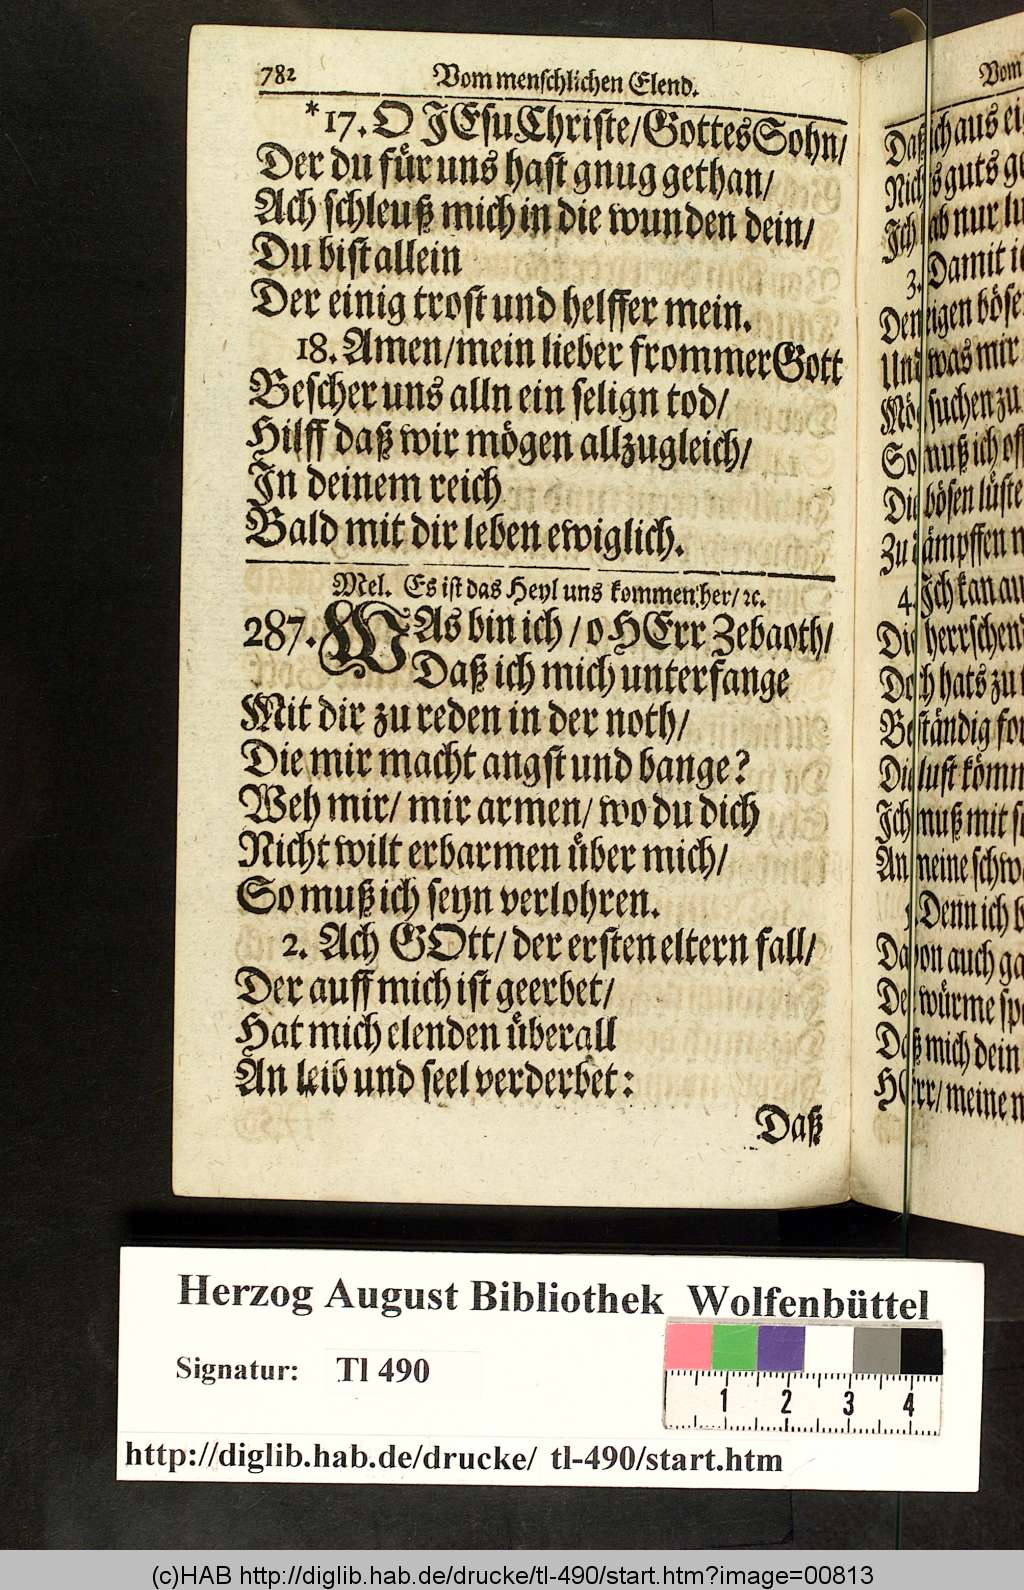 782 Vom menschlichen Elend.
*17. O JEsu Christe/ Gottes Sohn/
Der du für uns hast gnug gethan/
Ach schleuß mich in die wunden dein/
Du bist allein
Der einig trost und helffer mein.
18. Amen/ mein lieber frommer Gott
Bescher uns alln ein selign tod/
Hilff daß wir mögen allzugleich/
In deinem reich
Bald mit dir leben ewiglich.
Mel. Es ist das Heyl uns kommen her/ ꝛc.
287. WAs bin ich / o HErr Zebaoth/
Daß ich mich unterfange
Mit dir zu reden in der noth/
Die mir macht angst und bange?
Weh mir/ mir armen/ wo du dich
Nicht wilt erbarmen über mich/
So muß ich seyn verlohren.
2. Ach GOtt/ der ersten eltern fall/
Der auff mich ist geerbet/
Hat mich elenden überall
An leib und seel verderbet:
Daß
Vom
Daß ich aus
Nichts guts
Ich hab nur
3. Damit
Den eigen
Und was mir
suchen zu
So muß ich
Die bösen lüste
Zu dämpffen
4. Ich kan
Die
Doch hats zu
Beständig
Die lust
Ich muß mit
An meine
5. Denn ich
Davon auch
würme
Daß mich dein
HErr/ meine
Herzog August Bibliothek Wolfenbüttel
Signatur: Tl 490
1 2 3 4
http://diglib.hab.de/drucke/ tl-490/start.htm
(c)HAB http://diglib.hab.de/drucke/tl-490/start.htm?image=00813